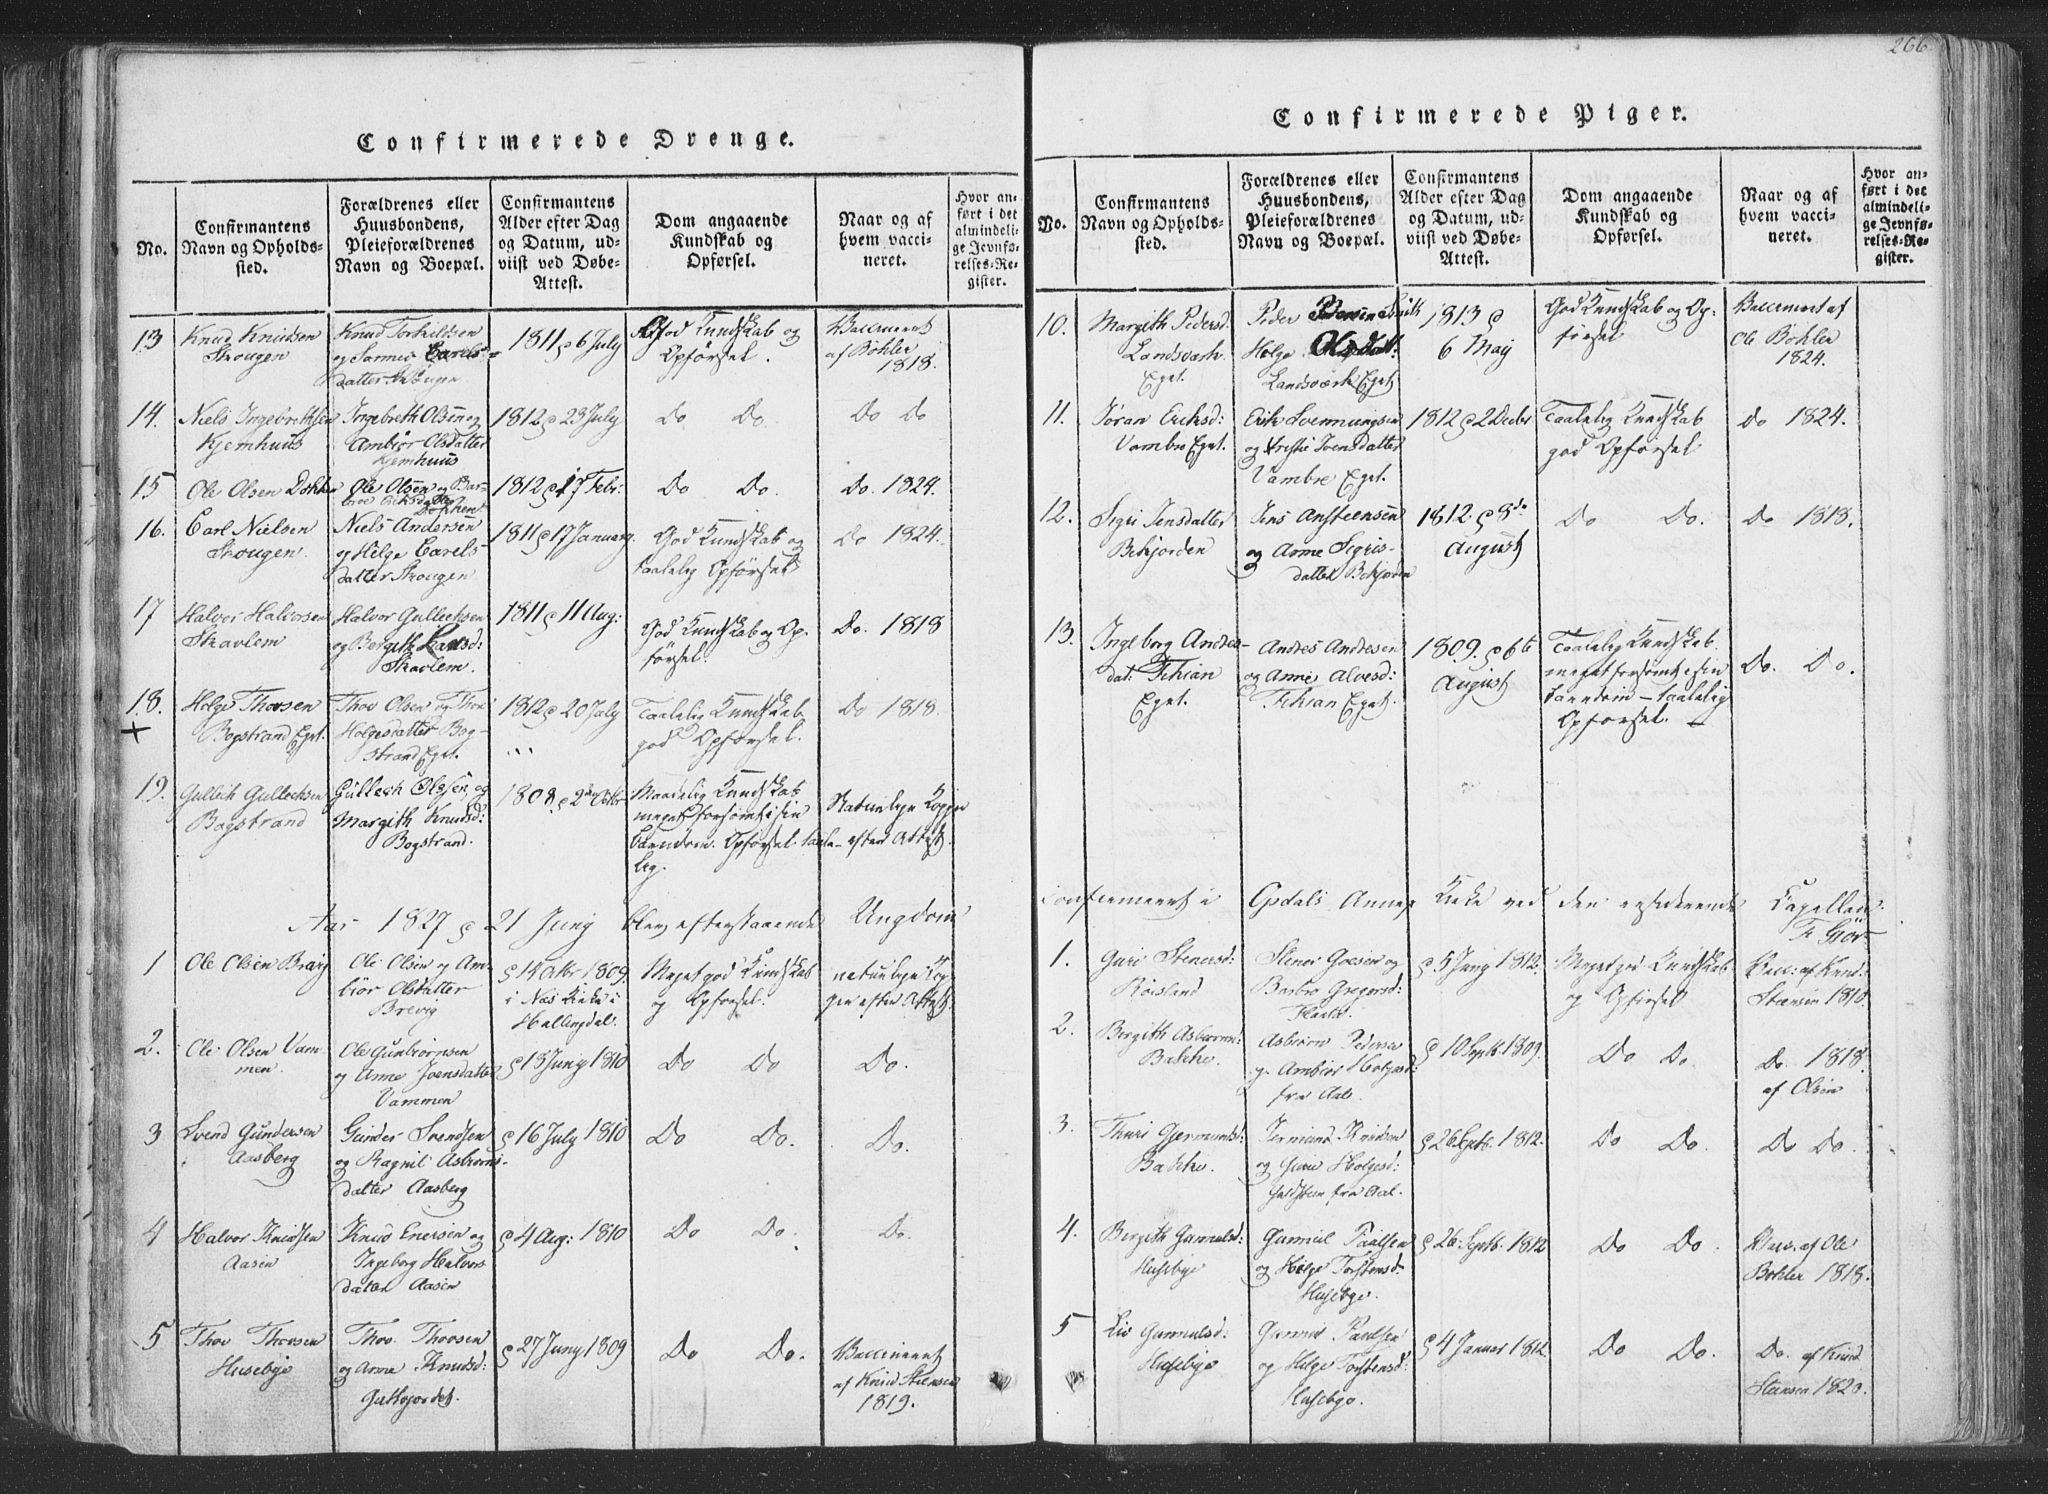 266
Confirmerede Drenge.
No.
Confirmantens
Navn og Opholds-
sted.
Forældrenes eller
Huusbondens,
Pleieforældrenes
Navn og Boepæl.
Confirmantens
Alder efter Dag
og Datum, ud-
viist ved Døbe-
Attest.
Dom angaaende
Kundskab og
Opførsel.
Naar og af
hvem vacci-
neret.
Hvor an-
ført i det
almindeli-
ge Jevnfø-
relses-Re-
gister.
13
Knud Knudsen
Skougen
Knud Torkildsen
og Sarmes Carels-
datter Skougen
1811 d 6 July
God Kundskab og
Opførsel.
Vaccineret
af Bøhler
1818.
14.
Niels Ingebrethsen
Kjemhuus
Ingebreth Olsen og
Ambiør Olsdatter
Kjemhuus
1812 d 23 July
Do Do
Do Do
15
Ole Olsen Dokken
Ole Olsen og Bar-
Dokken
1812 d 17 Febr:
Do Do.
Do. 1824.
16.
Carl Nielsen
Skougen
Niels Andersen
og Helge Carels-
datter Skougen
1811 d 17 January
God Kundskab og
taalelig Opførsel
Do 1824.
17
Halvor Halvorsen
Skavlem
Halvor Gulleksen
og Bergith Larsd:
Skavlem.
1811 d 11 Aug:
God Kundskab og Op-
førsel.
Do. 1818
18.
+
Helge Thorsen
Bogstrand Eget.
Thor Olsen og Thou
Holgesdatter Bog-
strand Eget.
1812 d 20 July
Taalelig Kundskab
god Opførsel.
Do 1818.
19.
Gullech Gullechsen
Bogstrand
Gullech Olsen og
Margith Knudsd:
Bogstrand.
1808 d 2den Octbr
Maadelig Kundskab
meget forsømt i sin
Barndom. Opførsel taale-
lig.
Naturlige Kopper
efter Attest.
Aar 1827 d 21 Juny blev efterstaaende Ungdom
1
Ole Olsen Brevig
Ole Olsen og Am-
biør Olsdatter
Brevig
d 14 Octbr 1809.
i Næs Kirke i
Hallingdal.
Meget god Kundskab
og Opførsel.
naturlige Kop-
per efter Attest
2.
Ole Olsen Vam-
men.
Ole Gunbiørnsen
og Anne Joensdatter
Vammen
d 13 Juny 1810
Do Do
Do.
3
Svend Gundersen
Aasberg
Gunder Svendsen
og Ragnil Asbiørns-
datter Aasberg
d 16 July 1810
Do Do.
Do.
4
Halvor Knudsen
Aasen
Knud Enersen og
Ingeborg Halvors
datter Aasen
d 4 Aug: 1810
Do Do.
Do.
5
Thov Thovsen
Husebye
Thov Thovsen
og Anne Knudsd:
Gulsjordet.
d 27 Juny 1809
Do Do.
Vaccineret
af Knud Steensen
1819.
Confirmerede Piger.
No.
Confirmantens
Navn og Opholds-
sted.
Forældrenes eller
Huusbondens,
Pleieforældrenes
Navn og Boepæl.
Confirmantens
Alder efter Dag
og Datum, ud-
viist ved Døbe-
Attest.
Dom angaaende
Kundskab og
Opførsel.
Naar og af
hvem vacci-
neret.
Hvor an-
ført i det
almindeli-
ge Jevnfø-
relses-Re-
gister.
10.
Margith Pedersd:
Landsverk
Eget.
Peder
Helge Olsdat:
Landsværk Eget
1813 d
6 May
God Kundskab og Op-
førsel
Vaccineret af
Ole Bøhler
1824.
11.
Jøran Eriksd:
Vambre Eget.
Erik Svenningsen
og Kristie Svensdatter
Vambre Eget.
1812 d 2 Decbr
Taalelig Kundskab
god Opførsel
Do 1824.
12.
Sigri Jensdatter
Bekjorden
Jens Ansteensen
og Anne Sigris-
datter Bekjorden
1812 d 8de
August
Do Do.
Do 1818.
13.
Ingeborg Andrea-
dat: Fekian
Eget.
Andres Andresen
og Anne Alvesd:
Fekian Eget.
1809. d 6te
August
Taalelig Kundskab
meget forsømt i sin
Barndom - taalelig
Opførsel.
Do. Do.
confirmeret i Opdals Annex Kirke ved den residerende Capellan
1.
Guri Stenersd:
Roisland
Stener Goesen og
Barbro Gregersd:
d 5 Juny 1812.
Meget god Kundskab
og Opførsel
Vacc: af Knud
Steensen 1810.
2.
Bergith Asbiørnsd:
Bakke.
Asbiørn Pedersen
og Ambiør Holgesd:
fra Aal.
d 10 Septb. 1809.
Do Do.
Do. 1818.
af Olsen
3.
Thuri Gjermunds:
Bakke.
Jermund Knudsen
og Guri Holgesd:
fra Aal.
d 26 Septb. 1812.
Do Do.
Do Do.
4.
Bergith Gunnulsd:
Husebye
Gunnul Paalsen
og Helge Torstensd:
Husebye.
d 26. Septb. 1812
Do Do.
Vacc. af Ole
Bøhler 1818.
5
Liv Gunnulsd:
Husebye
Gunnul Paalsen
og Helge Torstensd:
Husebye.
d 4 Januar 1812
Do Do.
Do. af Knud
Steensen 1820.